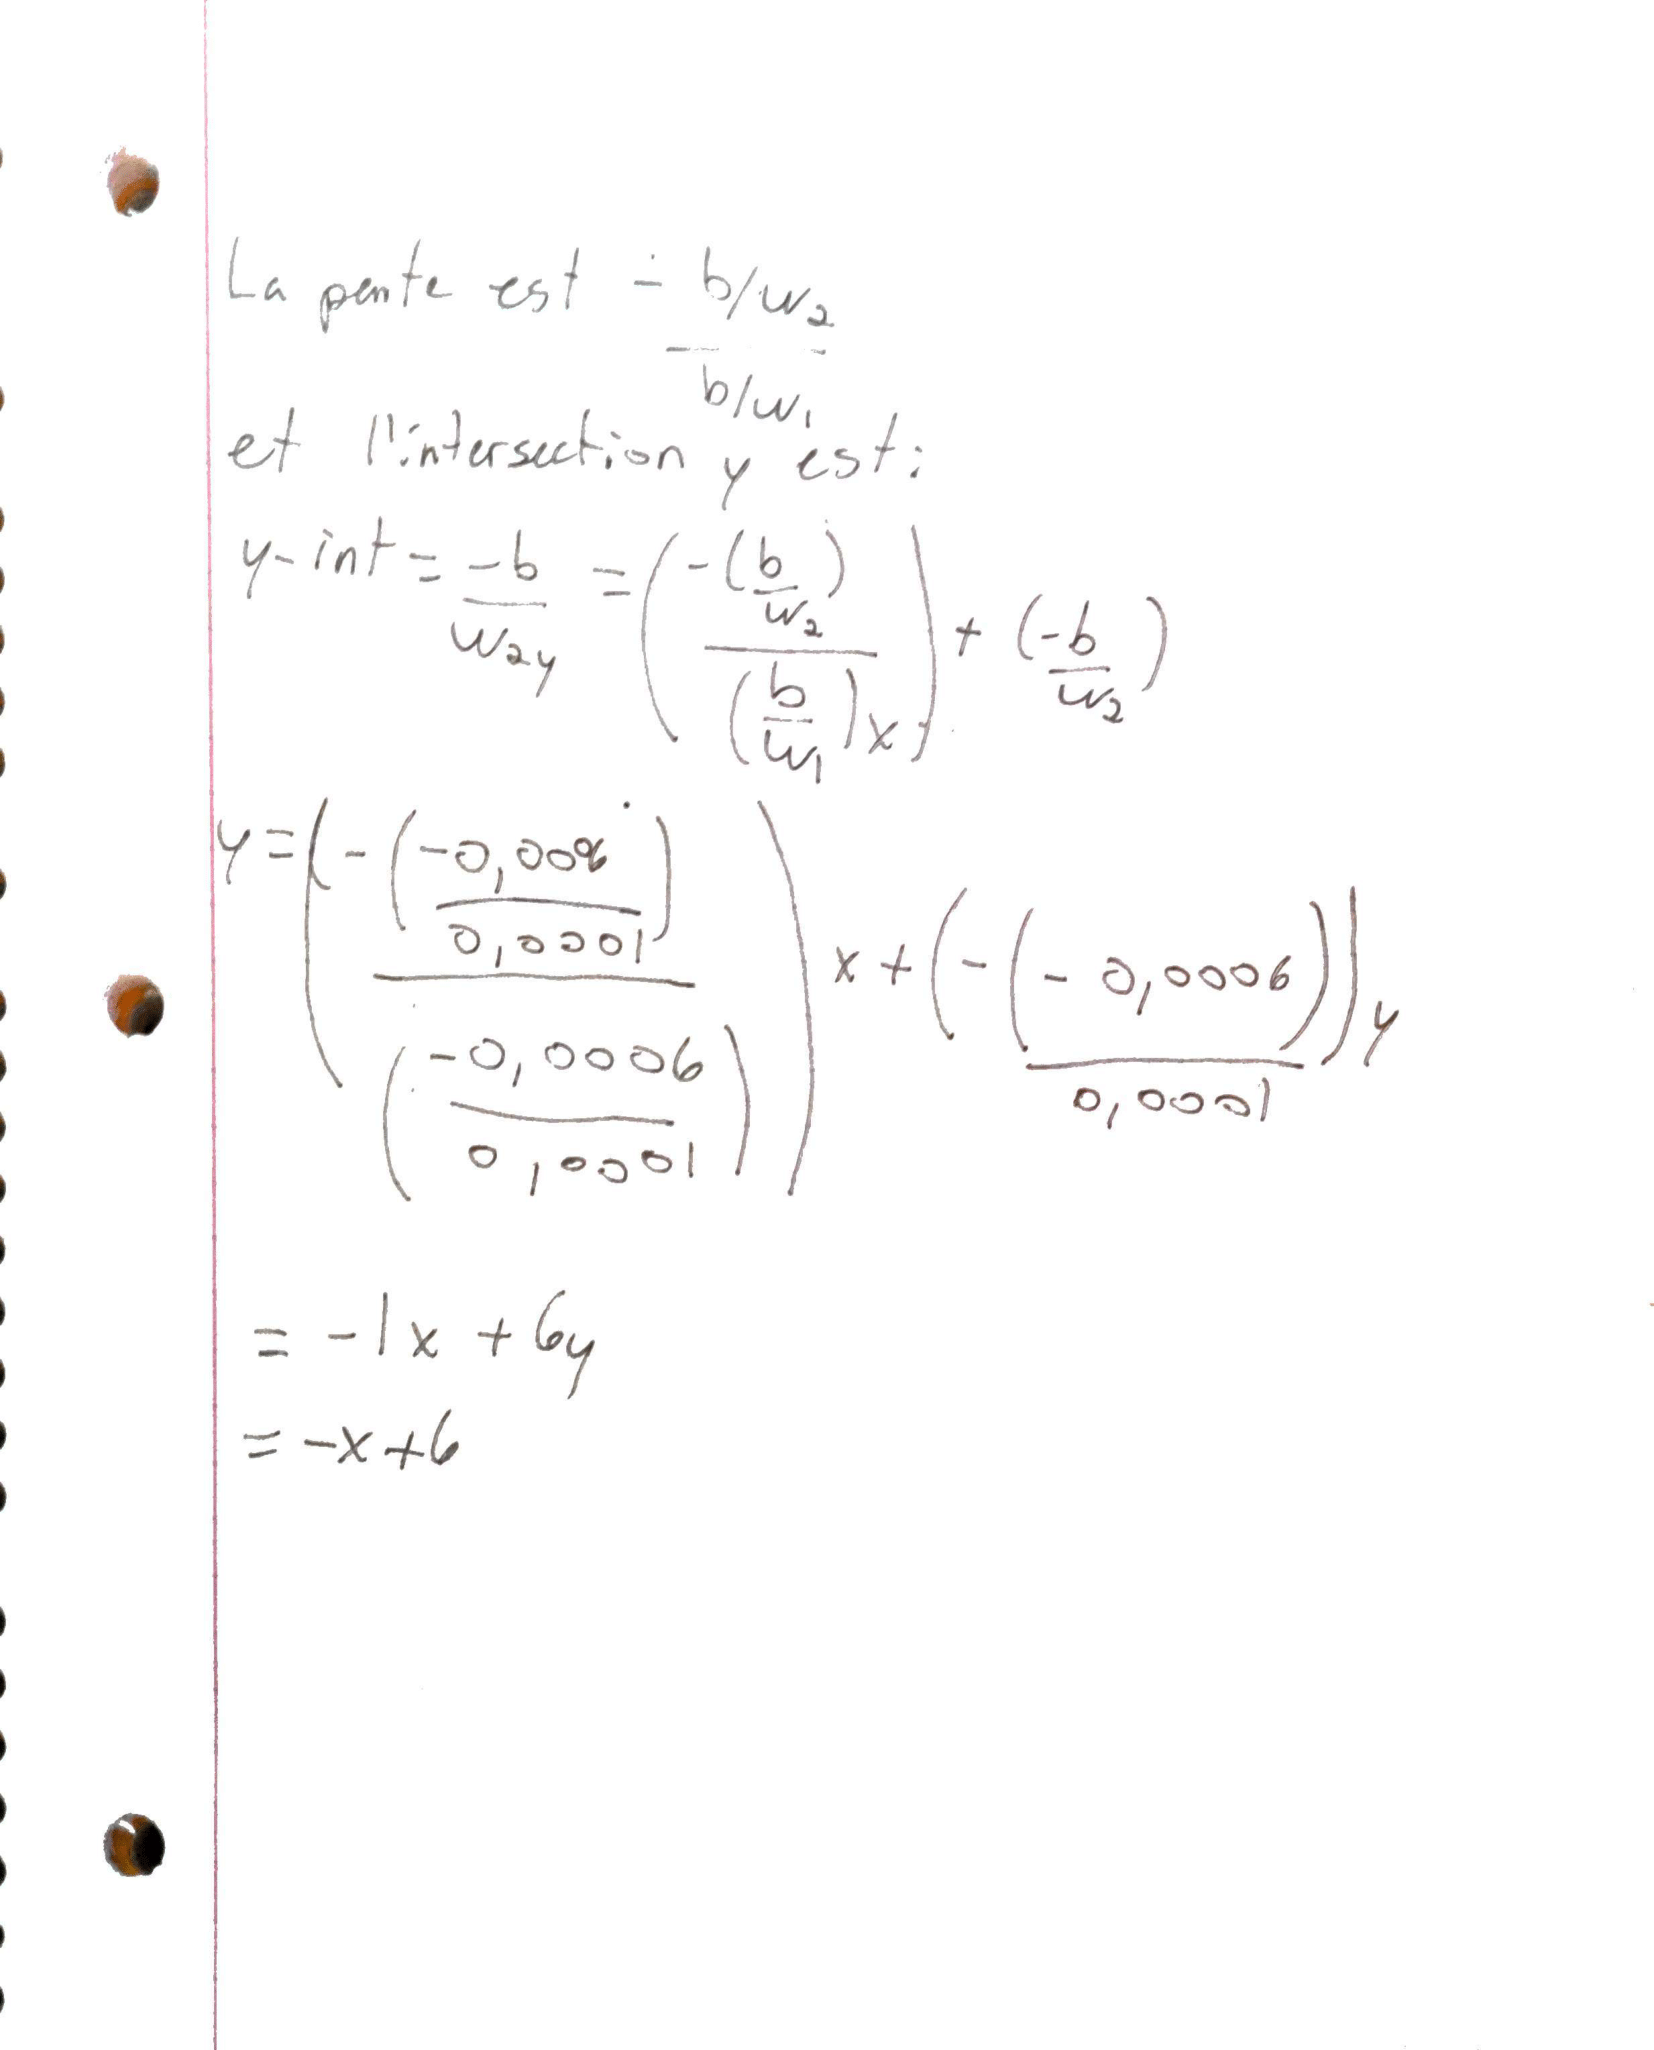 La pente est -(b/w₂)/(b/w₁)
et l'intersection y est:
y-int = -b/w₂y = (-(b/w₂)/(b/w₁)x) + (-b/w₂)
y = (-(-0,0006/0,0001)/(-0,0006/0,0001))x + (-(-0,0006/0,0001))y
= -1x + 6y
= -x+6